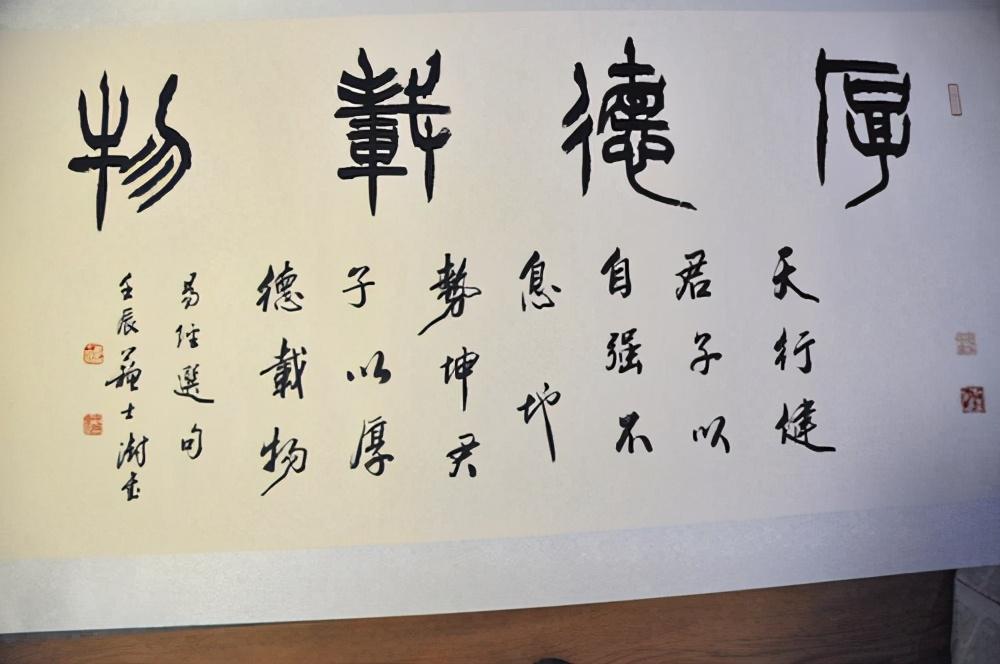 厚德載物
天行健
君子以
自强不
息地
勢坤君
子以厚
德載物
易經選句
壬辰蘇士澍書